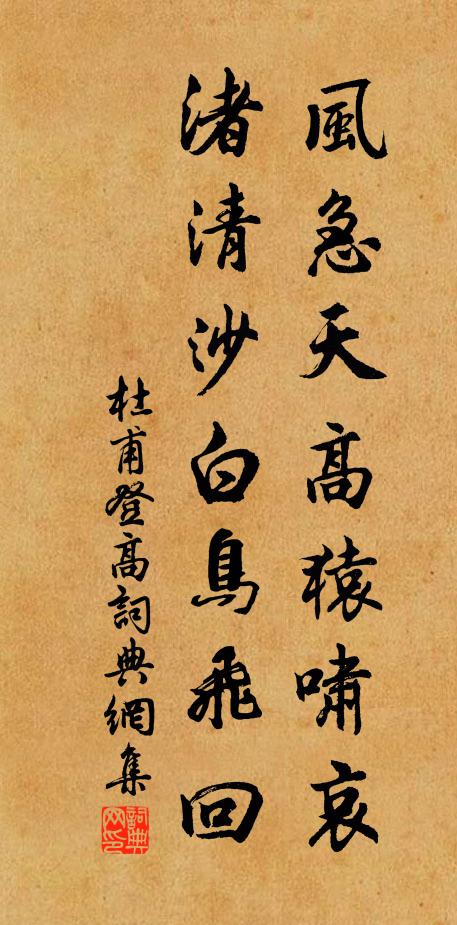 風急天高猿嘯哀
渚清沙白鳥飛回
杜甫登高詞典網集
詞典网印